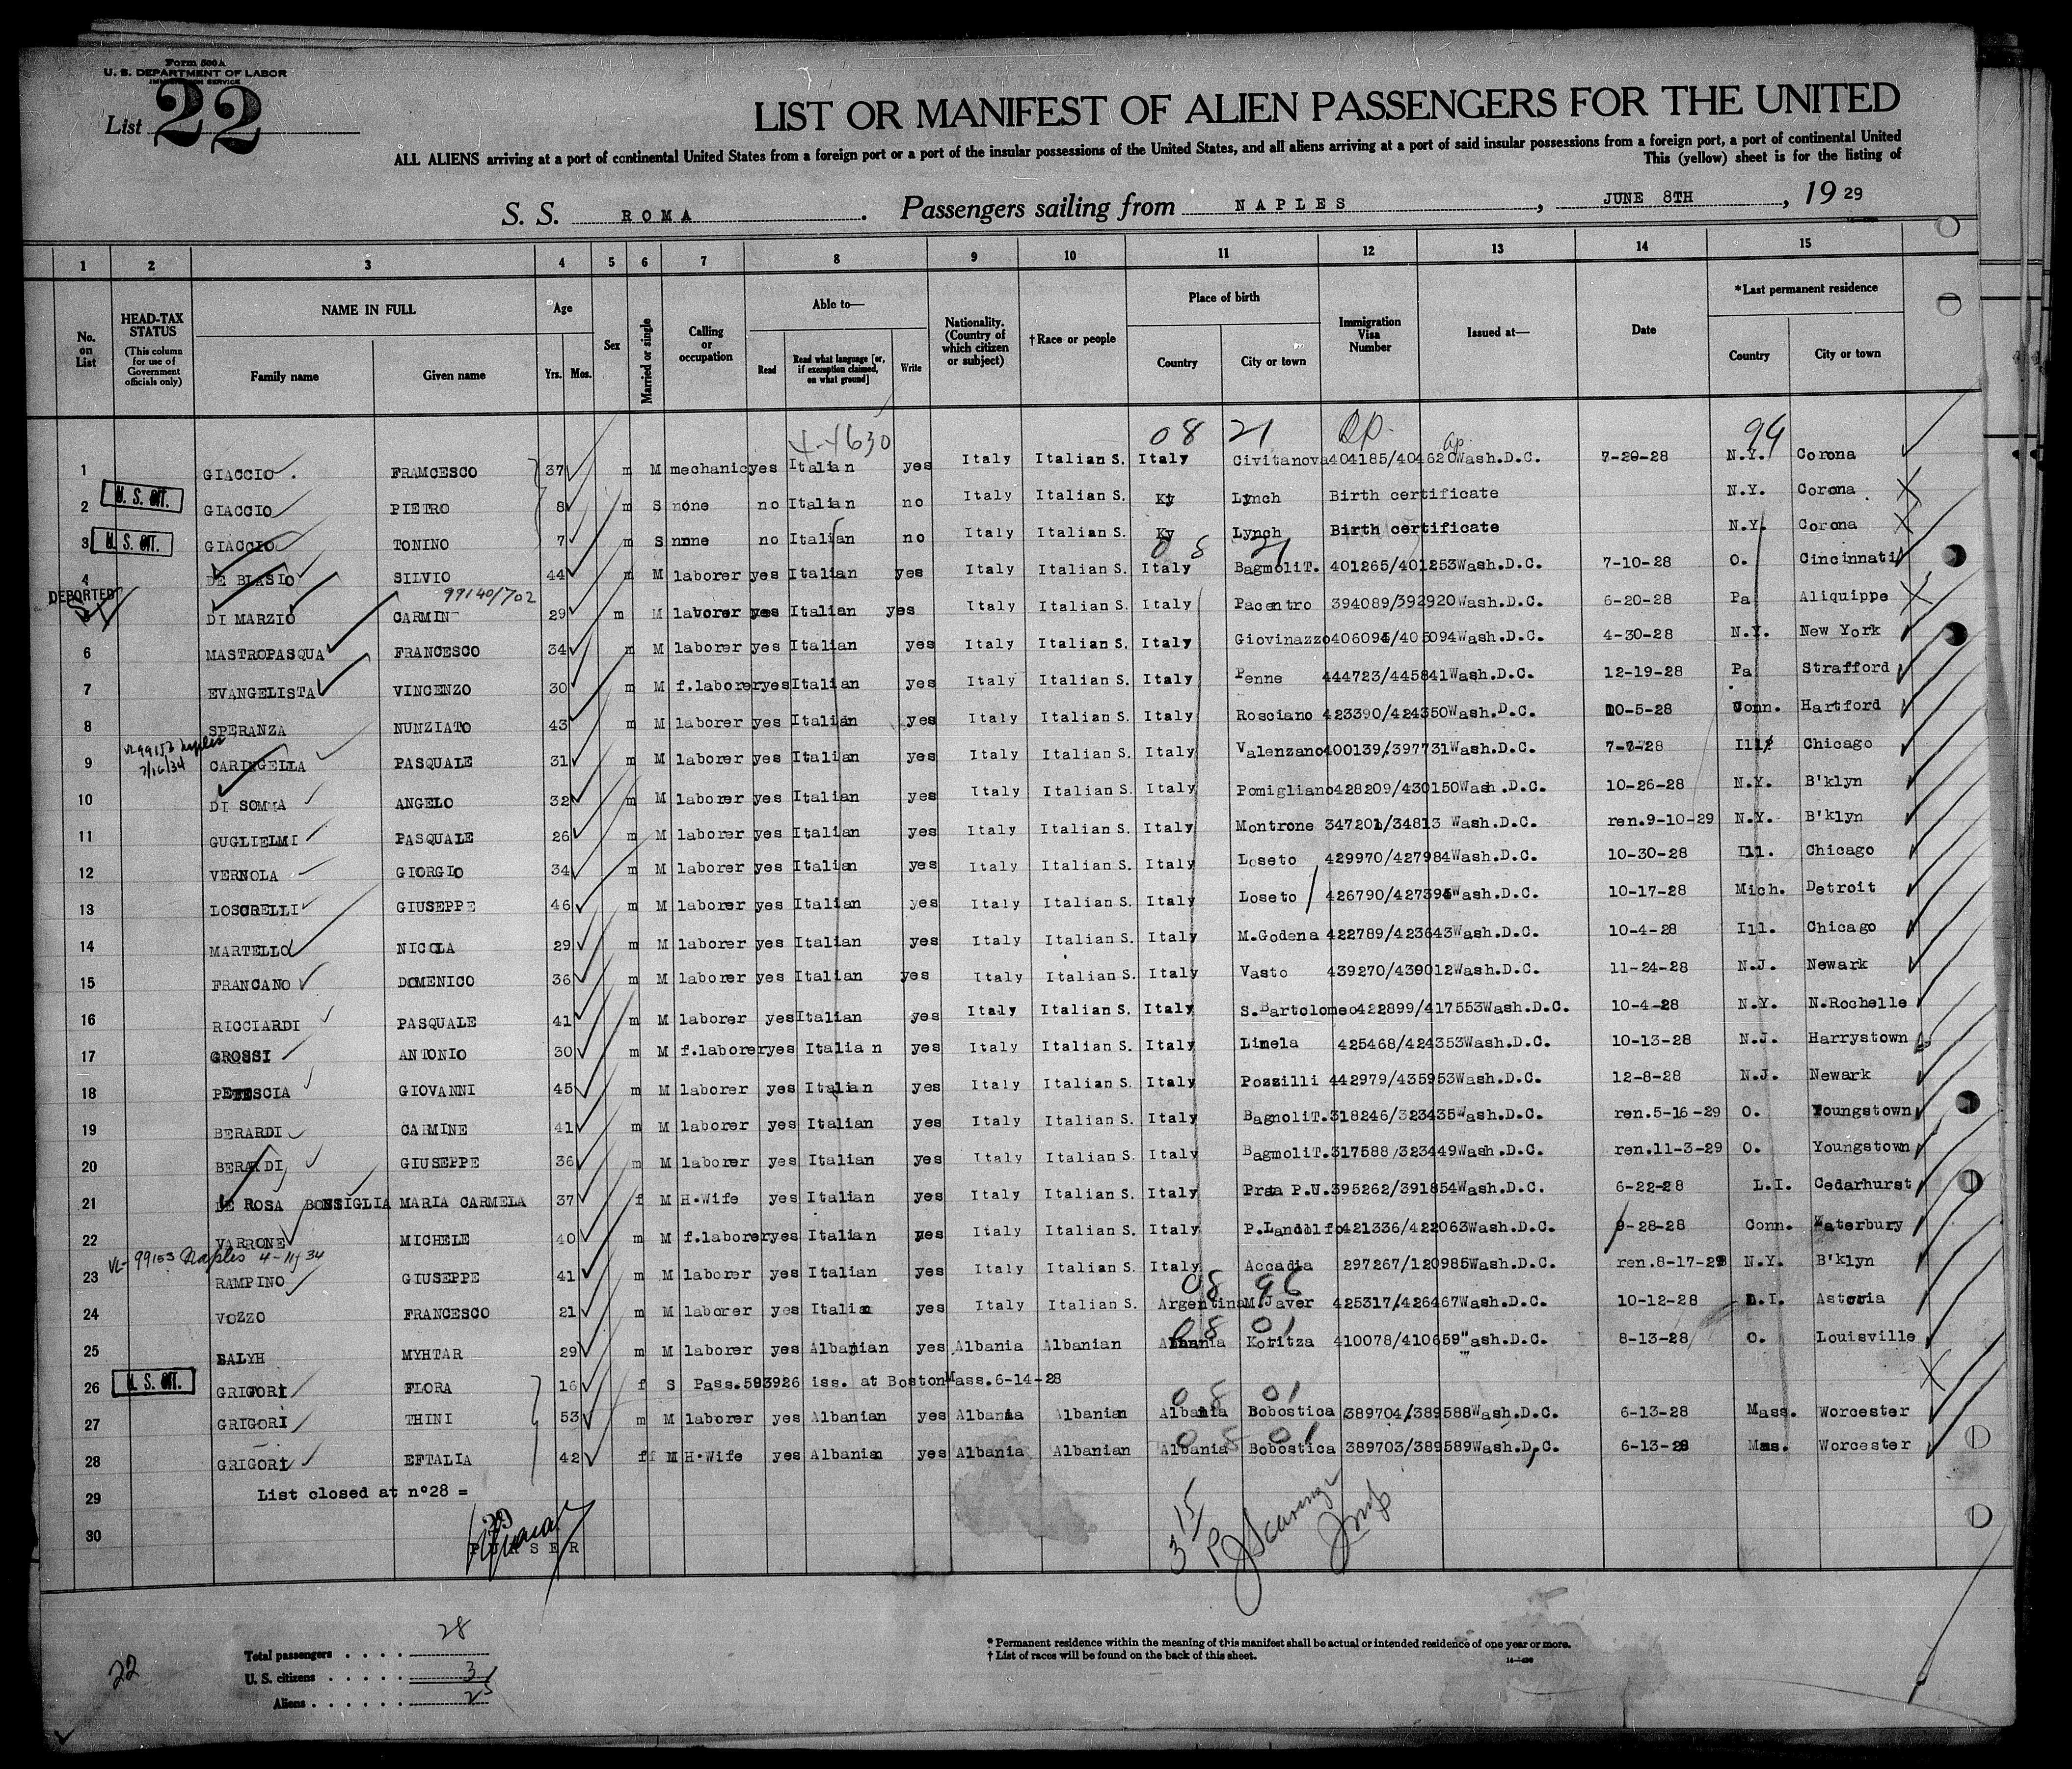 Form 500 A
U. S. DEPARTMENT OF LABOR
IMMIGRATION SERVICE
List 22
LIST OR MANIFEST OF ALIEN PASSENGERS FOR THE UNITED
ALL ALIENS arriving at a port of continental United States from a foreign port or a port of the insular possessions of the United States, and all aliens arriving at a port of said insular possessions from a foreign port, a port of continental United
This (yellow) sheet is for the listing of
S. S. ROMA. Passengers sailing from NAPLES, JUNE 8TH, 19 29
1 2 3 4 5 6 7 8 9 10 11 12 13 14 15
No. on List
HEAD-TAX STATUS (This column for use of Government officials only)
NAME IN FULL Family name Given name
Age Yrs. Mos.
Sex
Married or single
Calling or occupation
Able to— Read Read what language [or, if exemption claimed, on what ground] Write
Nationality. (Country of which citizen or subject)
†Race or people
Place of birth Country City or town
Immigration Visa Number
Issued at—
Date
*Last permanent residence Country City or town
4-4630 08 21 94
1 GIACCIO FRAMCESCO 37 m M mechanic yes Italian yes Italy Italian S. Italy Civitanova 404185/404620 Wash.D.C. 7-20-28 N.Y. Corona
2 U. S. CIT. GIACCIO PIETRO 8 m S none no Italian no Italy Italian S. Ky Lynch Birth certificate N.Y. Corona
3 U. S. CIT. GIACCIO TONINO 7 m S none no Italian no Italy Italian S. Ky Lynch Birth certificate N.Y. Corona
08 21
4 DE BIASIO SILVIO 44 m M laborer yes Italian yes Italy Italian S. Italy BagmoliT. 401265/401253 Wash.D.C. 7-10-28 O. Cincinnati
DEPORTED 99140/702
5 DI MARZIO CARMIN 29 m M laborer yes Italian yes Italy Italian S. Italy Pacentro 394089/392920 Wash.D.C. 6-20-28 Pa Aliquippe
6 MASTROPASQUA FRANCESCO 34 m M laborer yes Italian yes Italy Italian S. Italy Giovinazzo 406094/405094 Wash.D.C. 4-30-28 N.Y. New York
7 EVANGELISTA VINCENZO 30 m M f.laborer yes Italian yes Italy Italian S. Italy Penne 444723/445841 Wash.D.C. 12-19-28 Pa Strafford
8 SPERANZA NUNZIATO 43 m M laborer yes Italian yes Italy Italian S. Italy Rosciano 423390/424350 Wash.D.C. 10-5-28 Conn. Hartford
VL 99153 Naples 7/16/34
9 CARINGELLA PASQUALE 31 m M laborer yes Italian yes Italy Italian S. Italy Valenzano 400139/397731 Wash.D.C. 7-7-28 Ill. Chicago
10 DI SOMMA ANGELO 32 m M laborer yes Italian yes Italy Italian S. Italy Pomigliano 428209/430150 Wash.D.C. 10-26-28 N.Y. B'klyn
11 GUGLIELMI PASQUALE 26 m M laborer yes Italian yes Italy Italian S. Italy Montrone 347201/34813 Wash.D.C. ren.9-10-29 N.Y. B'klyn
12 VERNOLA GIORGIO 34 m M laborer yes Italian yes Italy Italian S. Italy Loseto 429970/427984 Wash.D.C. 10-30-28 Ill. Chicago
13 LOSCRELLI GIUSEPPE 46 m M laborer yes Italian yes Italy Italian S. Italy Loseto 426790/427394 Wash.D.C. 10-17-28 Mich. Detroit
14 MARTELLO NICOLA 29 m M laborer yes Italian yes Italy Italian S. Italy M.Godena 422789/423643 Wash.D.C. 10-4-28 Ill. Chicago
15 FRANCANO DOMENICO 36 m M laborer yes Italian yes Italy Italian S. Italy Vasto 439270/439012 Wash.D.C. 11-24-28 N.J. Newark
16 RICCIARDI PASQUALE 41 m M laborer yes Italian yes Italy Italian S. Italy S.Bartolomeo 422899/417553 Wash.D.C. 10-4-28 N.Y. N.Rochelle
17 GROSSI ANTONIO 30 m M f.laborer yes Italian yes Italy Italian S. Italy Limela 425468/424353 Wash.D.C. 10-13-28 N.J. Harrystown
18 PETESCIA GIOVANNI 45 m M laborer yes Italian yes Italy Italian S. Italy Pozzilli 442979/435953 Wash.D.C. 12-8-28 N.J. Newark
19 BERARDI CARMINE 41 m M laborer yes Italian yes Italy Italian S. Italy BagnoliT. 318246/323435 Wash.D.C. ren.5-16-29 O. Youngstown
20 BERARDI GIUSEPPE 36 m M laborer yes Italian yes Italy Italian S. Italy BagmoliT. 317588/323449 Wash.D.C. ren.11-3-29 O. Youngstown
21 DE ROSA BONSIGLIA MARIA CARMELA 37 f M H.Wife yes Italian yes Italy Italian S. Italy Prata P.U. 395262/391854 Wash.D.C. 6-22-28 L.I. Cedarhurst
22 VARRONE MICHELE 40 m M f.laborer yes Italian yes Italy Italian S. Italy P.Landolfo 421336/422063 Wash.D.C. 9-28-28 Conn. Waterbury
VL- 99153 Naples 4-11/34
23 RAMPINO GIUSEPPE 41 m M laborer yes Italian yes Italy Italian S. Italy Accadia 297267/120985 Wash.D.C. ren.8-17-29 N.Y. B'klyn
08 96
24 VOZZO FRANCESCO 21 m M laborer yes Italian yes Italy Italian S. Argentina M.Javer 425317/426467 Wash.D.C. 10-12-28 L.I. Astoria
08 01
25 BALYH MYHTAR 29 m M laborer yes Albanian yes Albania Albanian Albania Koritza 410078/410659 "ash.D.C. 8-13-28 O. Louisville
26 U. S. CIT. GRIGORI FLORA 16 f S Pass.593926 iss. at Boston Mass.6-14-28
08 01
27 GRIGORI THINI 53 m M laborer yes Albanian yes Albania Albanian Albania Bobostica 389704/389588 Wash.D.C. 6-13-28 Mass. Worcester
08 01
28 GRIGORI EFTALIA 42 ff M H.Wife yes Albanian yes Albania Albanian Albania Bobostica 389703/389589 Wash.D.C. 6-13-28 Mas. Worcester
29 List closed at n°28 =
30
PURSER
3 15
Total passengers . . . . 28
U. S. citizens . . . . . 3
Aliens . . . . . . 25
22
* Permanent residence within the meaning of this manifest shall be actual or intended residence of one year or more.
† List of races will be found on the back of this sheet.